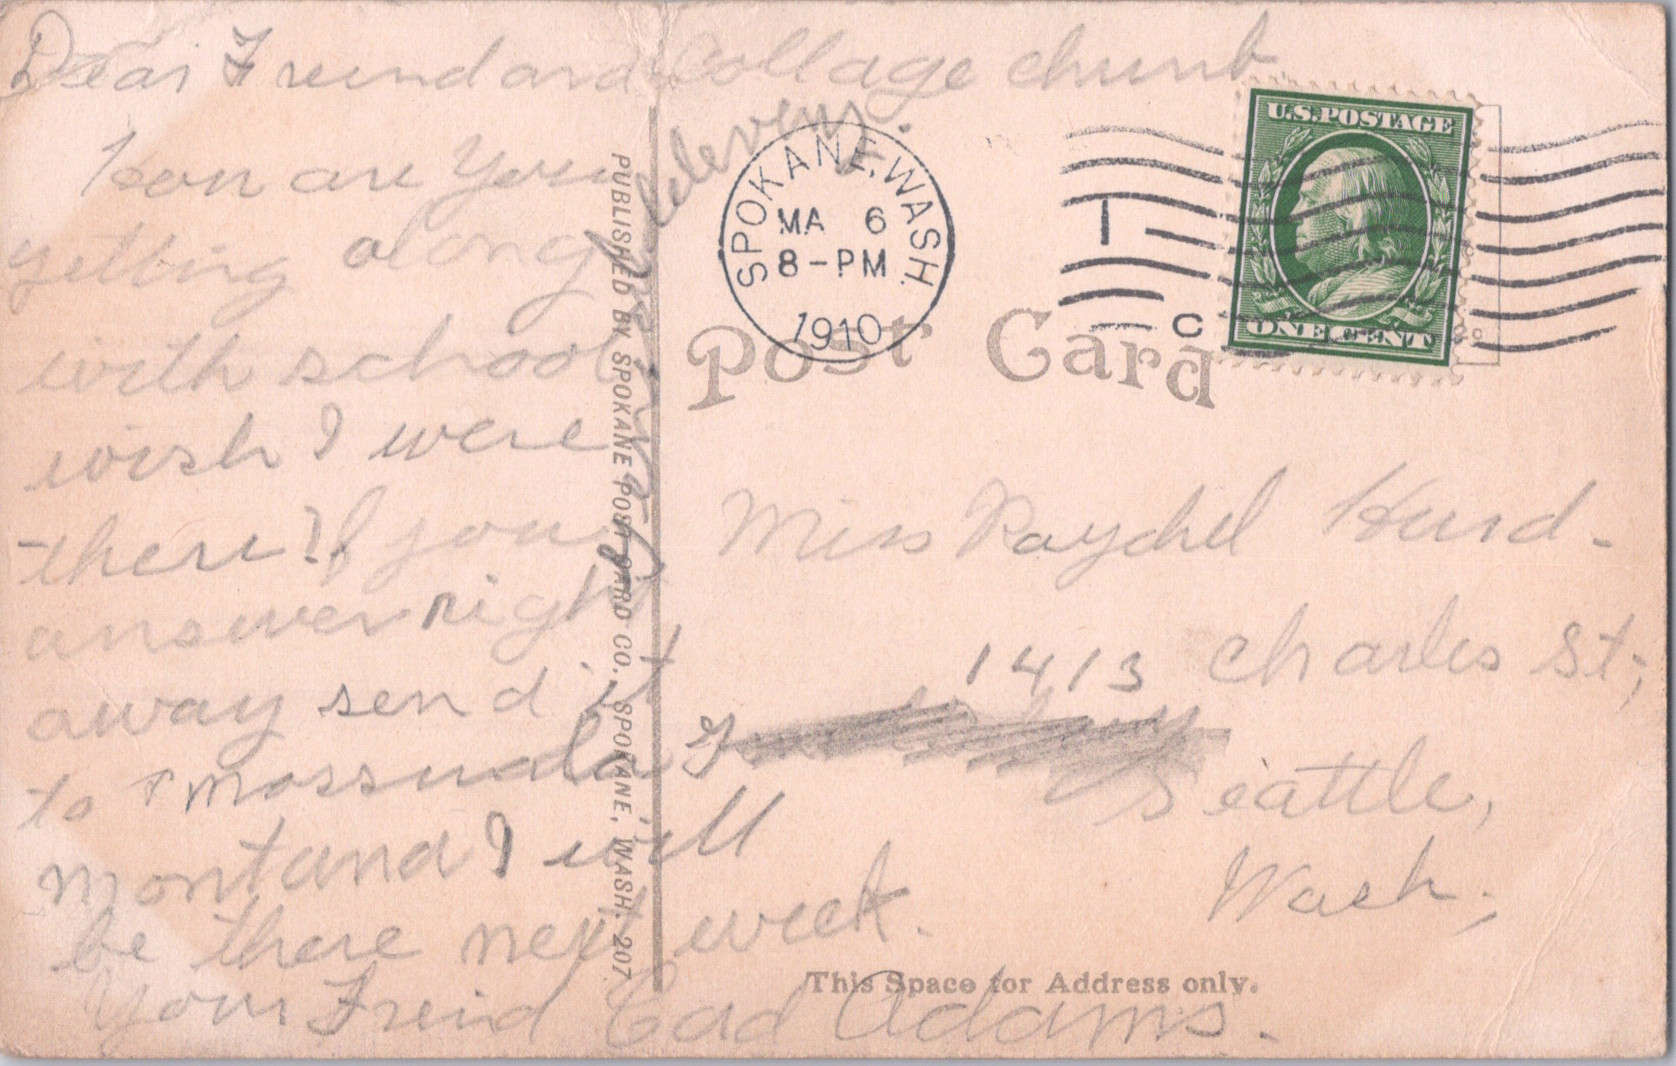 Dear Freind and Collage chumb
How are you
getting along
with school
wish I were
there? If you
answer right
away send it
to Mossuala
Mont and I will
be there next week.
Your Freind Cad Adams.
PUBLISHED BY SPOKANE POST CARD CO., SPOKANE, WASH. 207
SPOKANE, WASH.
MA 6
8-PM
1910
1
C
U.S. POSTAGE
ONE CENT
Post Card
Miss Raychel Hurd.
1413 Charles St;
Seattle,
Wash.
This Space for Address only.